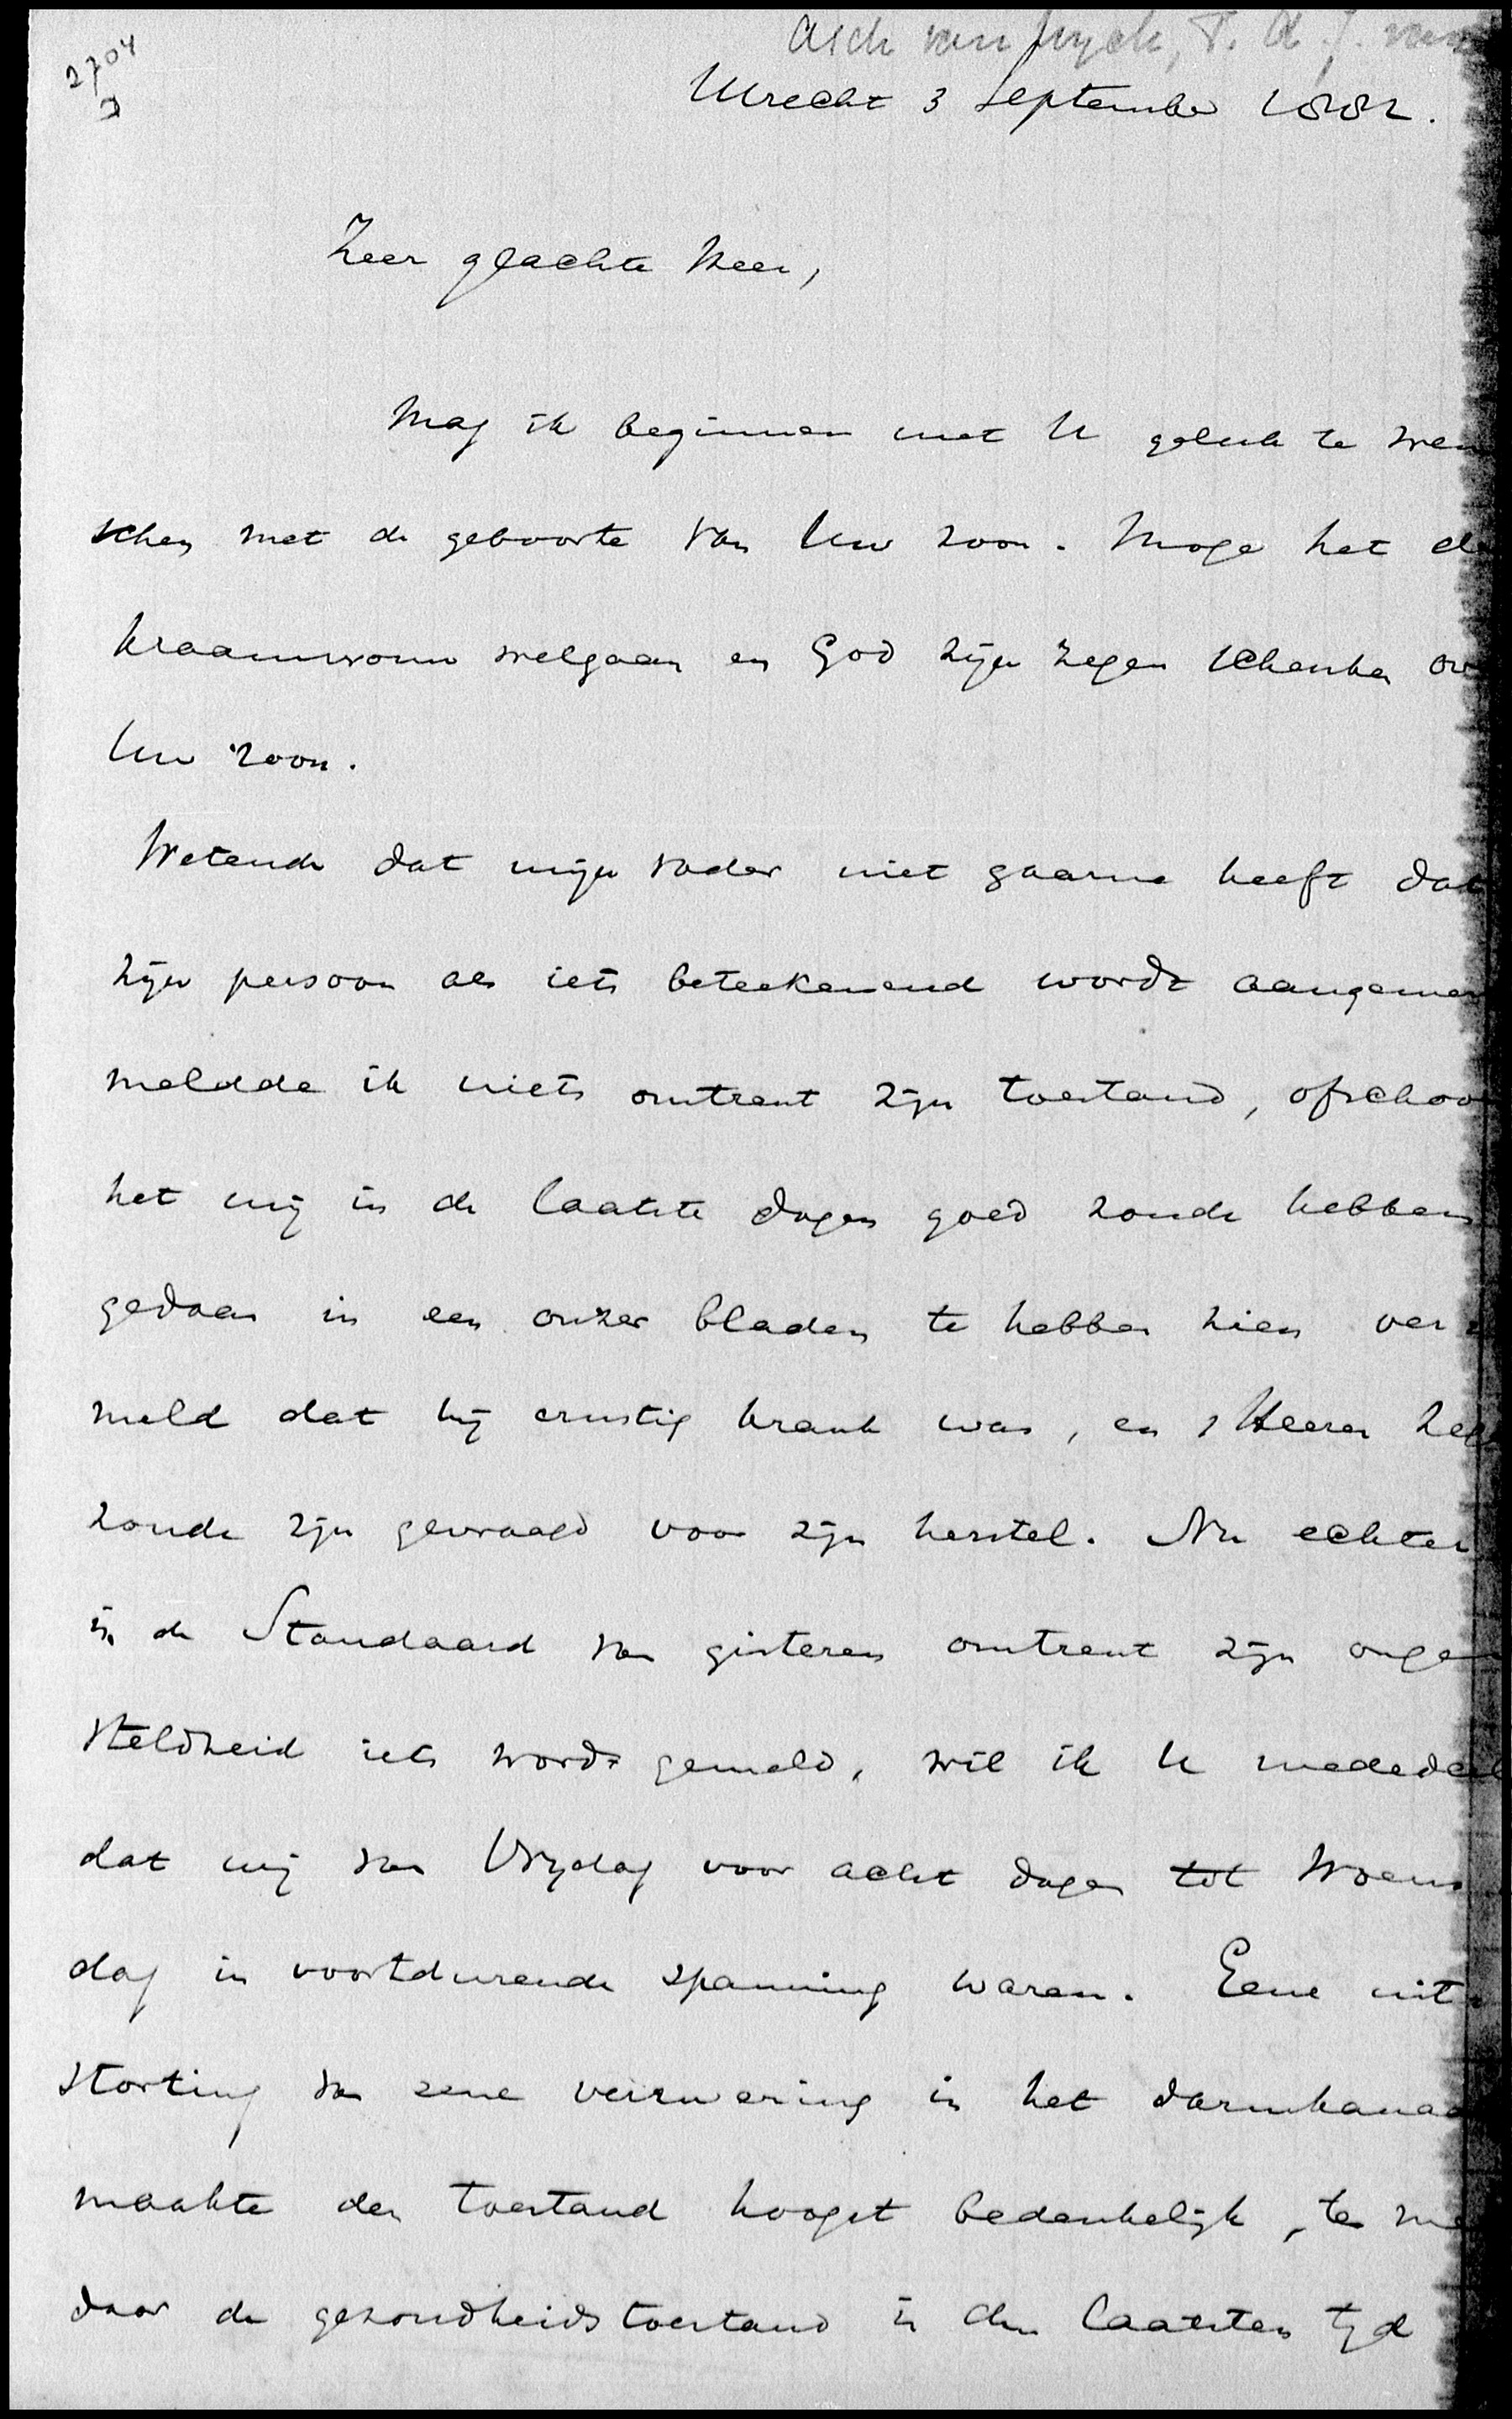 2704
Asch van Wyck, T. A. J. van
Utrecht 3 September 1882.
Zeer geachte Heer,
Mag ik beginnen met U geluk te wen
schen met de geboorte van Uw zoon. Moge het de
kraamvrouw welgaan en God zijn zegen schenken ov
Uw zoon.
Wetende dat mijn vader niet gaarne heeft dat
zijn persoon als iets beteekenend wordt aangemer
meldde ik niets omtrent zijn toestand, ofschoo
het mij in de laatste dagen goed zoude hebben
gedaan in een onzer bladen te hebben zien ver
meld dat hij ernstig krank was, en 's Heeren zege
zoude zijn gevraagd voor zijn herstel. Nu echter
in de Standaard van gisteren omtrent zijn onge
steldheid iets wordt gemeld, wil ik U mededeel
dat wij van Vrijdag voor acht dagen tot Woens
dag in voortdurende spanning waren. Eene uit
storting van eene verzwering in het darmkanaa
maakte den toestand hoogst bedenkelijk, te me
daar de gezondheidstoestand in den laatsten tijd